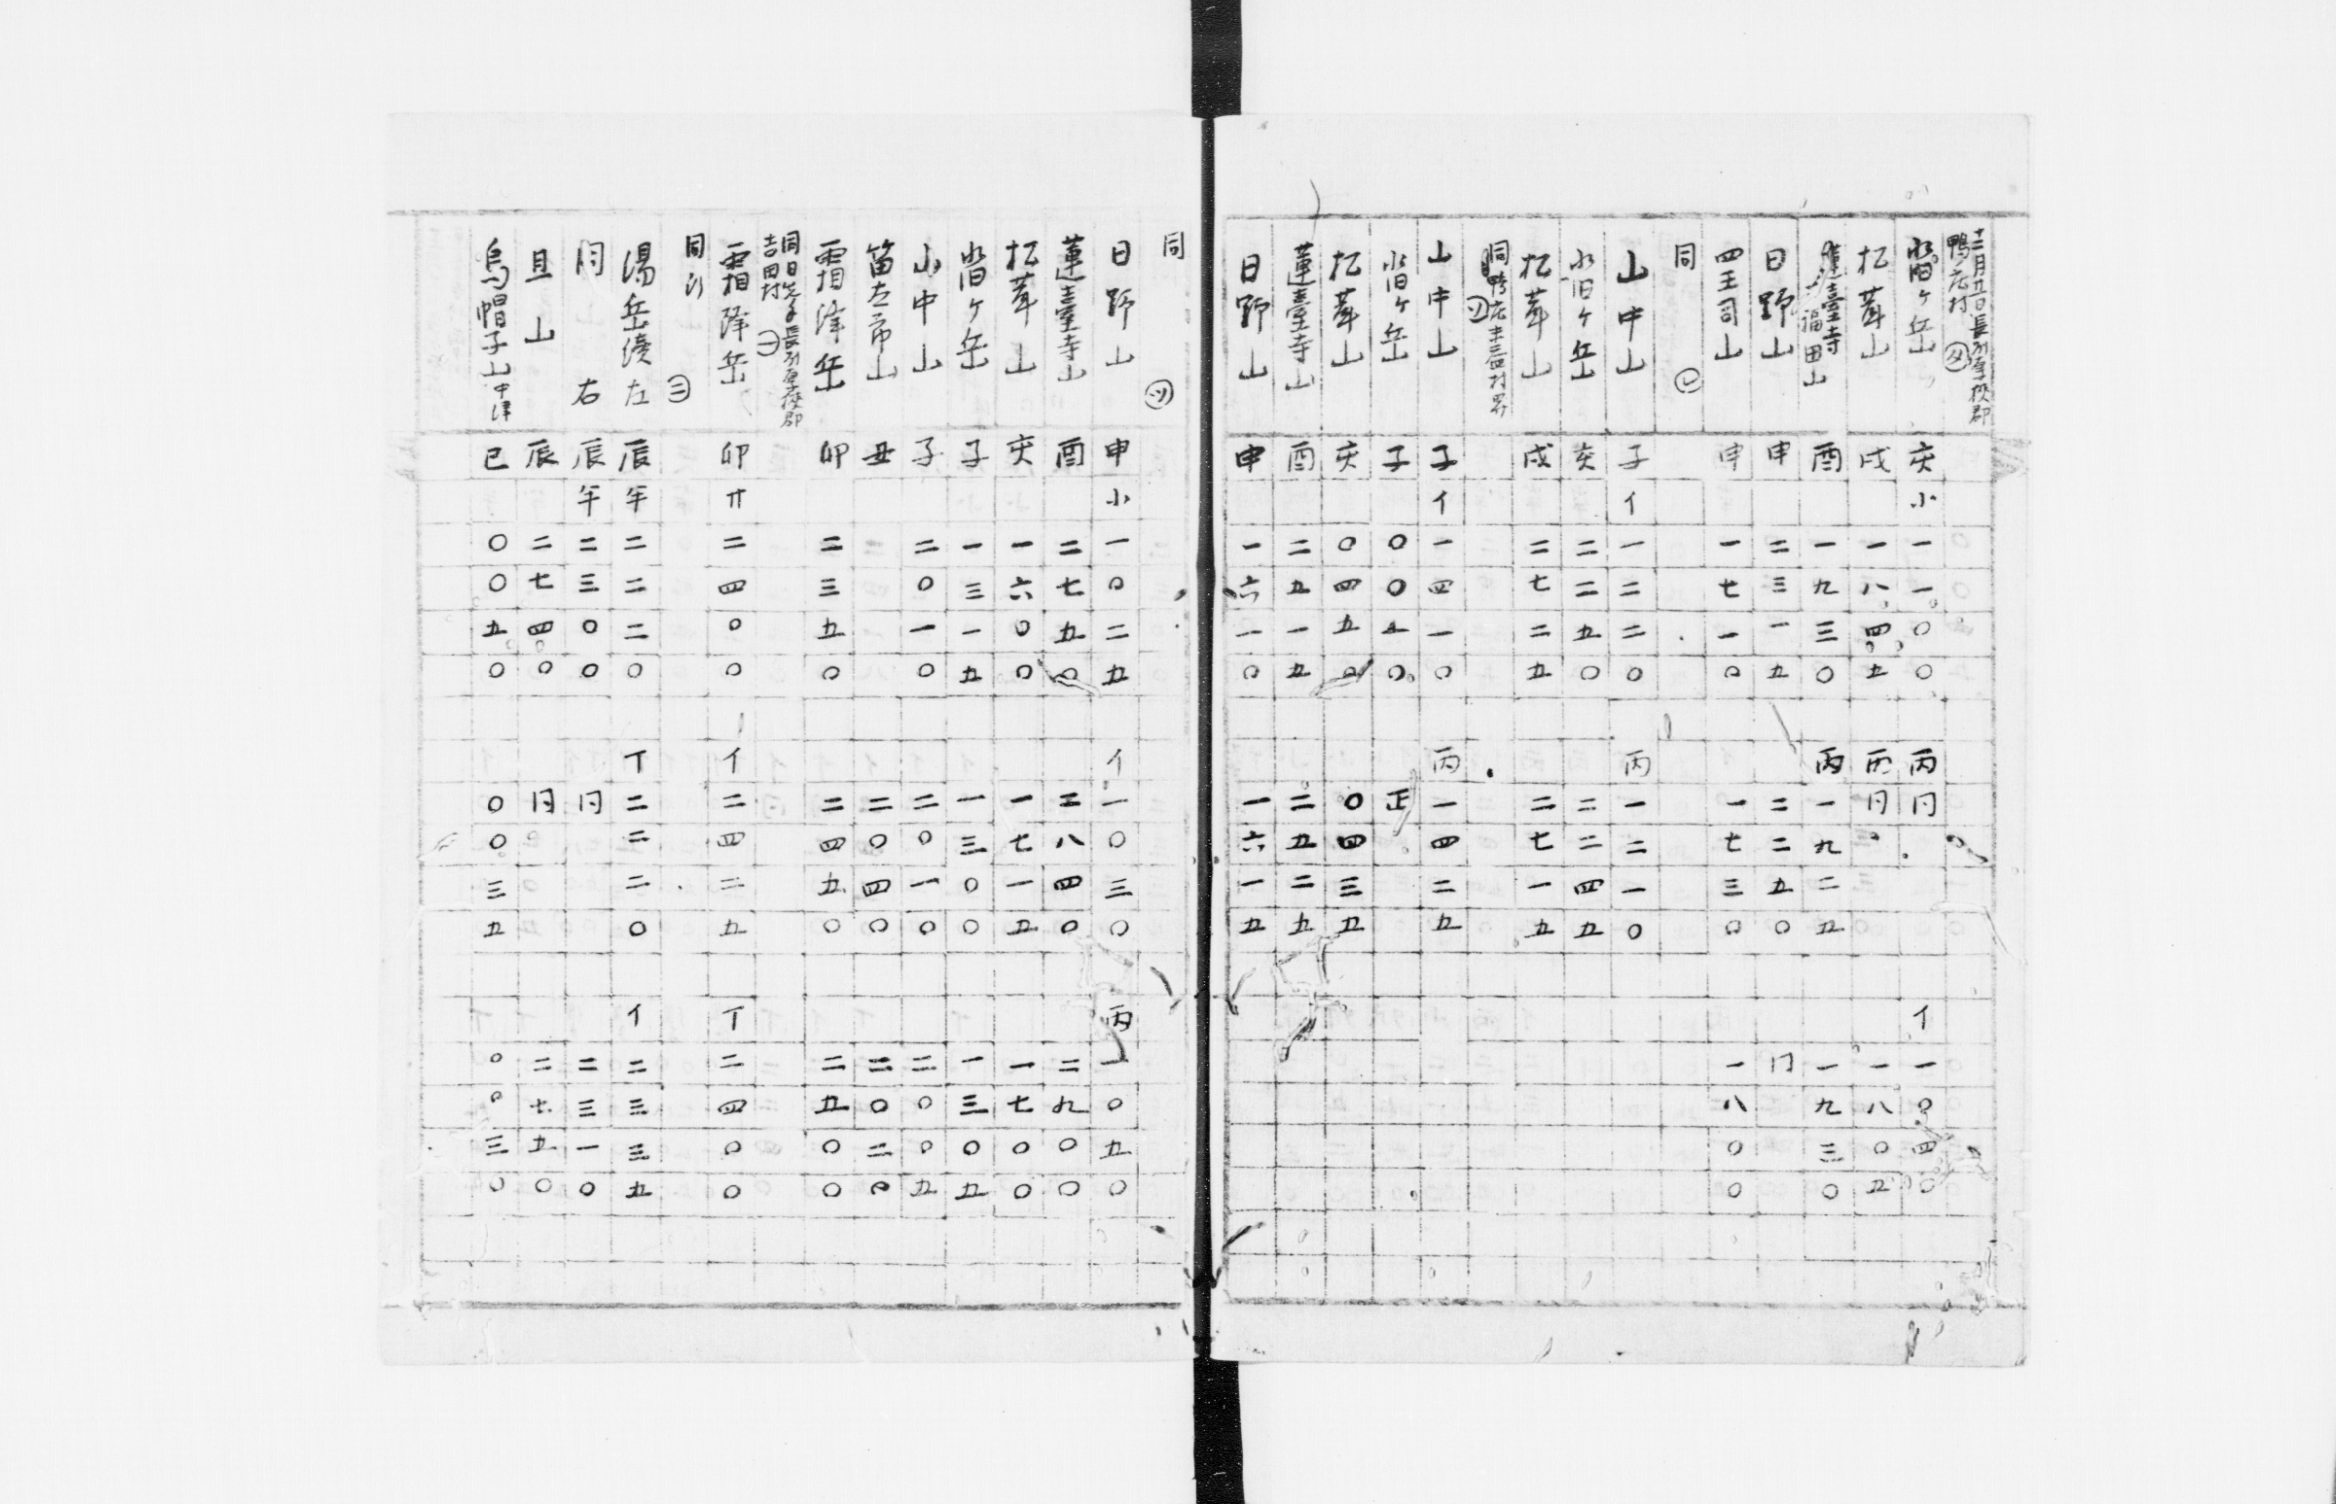 十二月九日長州厚狭郡
鴨庄村 タ
沓ヶ岳 亥 小 一一〇〇 丙 同 イ 一〇四〇
松茸山 戌 一八四五 丙 同 一八〇五
蓮臺寺 福田山 酉 一九三〇 丙 一九二五 一九三〇
日野山 申 二三一五 二二五〇 同
四王司山 申 一七一〇 一七三〇 一八〇〇
同 レ
山中山 子 イ 一二二〇 丙 一二一〇
沓ヶ岳 亥 二二五〇 二二四五
松茸山 戌 二七二五 二七一五
同 鴨庄 ソ
山中山 子 イ 一四一〇 丙 一四二五
沓ヶ岳 子 〇〇 〇 正
松茸山 亥 〇四五〇 〇四三五
蓮臺寺山 酉 二五一五 二五二五
日野山 申 一六一〇 一六一五
同 ツ
日野山 申 小 一〇二五 イ 一〇三〇 丙 一〇五〇
蓮臺寺山 酉 二七五〇 二八四〇 二九〇〇
松茸山 亥 一六〇〇 一七一五 一七〇〇
沓ヶ岳 子 一三一五 一三〇〇 一三〇五
小中山 子 二〇一〇 二〇一〇 二〇〇五
笛太帝山 丑 二〇四〇 二〇二〇
霜降岳 卯 二三五〇 二四五〇 二五〇〇
同日 長州厚狭郡
吉田村
霜降岳 卯 廾 二四〇〇 イ 二四二五 丁 二四〇〇
同 ヨ
湯岳 左 辰 午 二二二〇 丁 二二二〇 イ 二三三五
同 右 辰 午 二三〇〇 同 二三一〇
且山 辰 二七四〇 同 二七五〇
烏帽子山 中津 巳 〇〇五〇 〇〇三五 〇〇三〇